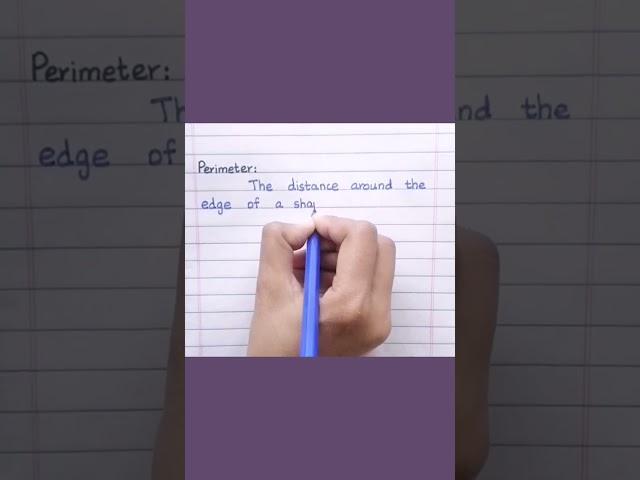 Perimeter:
The distance around the
edge of a sha